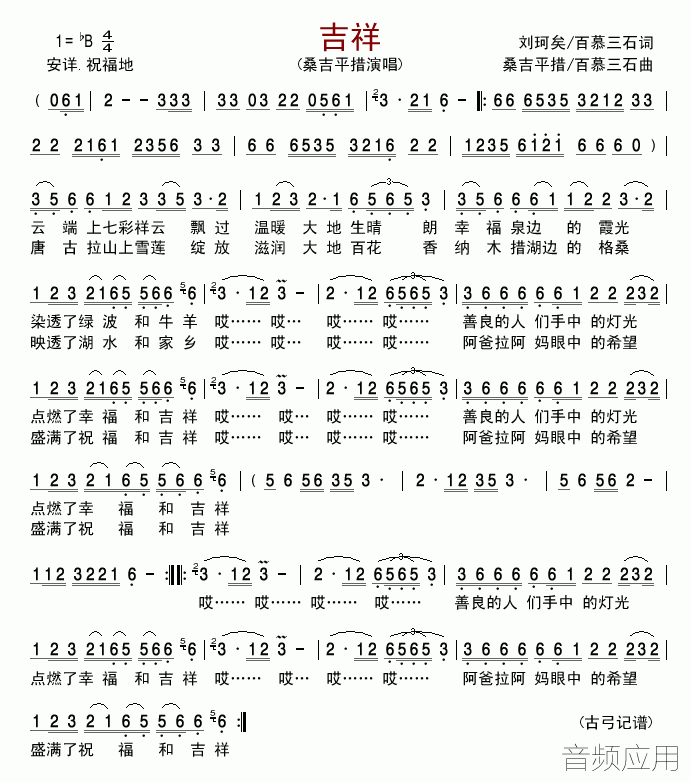 吉祥
1=♭B 4/4
刘珂矣/百慕三石词
安详.祝福地
(桑吉平措演唱)
桑吉平措/百慕三石曲
( 061 | 2 - - 333 | 33 03 22 0561 | 2 3 · 21 6 - ‖: 66 6535 3212 33 |
2 2 2161 2356 3 3 | 6 6 6535 3216 2 2 | 1235 6121 6 6 6 0 ) |
3 5 6 6 1 2 3 3 5 3·2 | 1 2 3 2·1 6 5 6 5 3 | 3 5 6 6 6 1 1 2 2 3 3 |
云 端 上七彩祥云 飘过 温暖 大地生晴 朗 幸福泉边 的 霞光
唐 古 拉山上雪莲 绽放 滋润 大地百花 香 纳木 措湖边的 格桑
1 2 3 2165 566 5 6 | 2 3 · 12 3 - | 2 · 12 6565 3 | 3 6 6 6 6 6 1 2 2 232 |
染透了绿 波 和 牛 羊 哎…… 哎… 哎…… 哎…… 善良的人 们手中 的灯光
映透了湖 水 和 家 乡 哎…… 哎… 哎…… 哎…… 阿爸拉阿 妈眼中 的希望
1 2 3 2165 566 5 6 | 2 3 · 12 3 - | 2 · 12 6565 3 | 3 6 6 6 6 6 1 2 2 232 |
点燃了幸 福 和 吉 祥 哎…… 哎… 哎…… 哎…… 善良的人 们手中 的灯光
盛满了祝 福 和 吉 祥 哎…… 哎… 哎…… 哎…… 阿爸拉阿 妈眼中 的希望
1 2 3 2 1 6 5 5 6 6 5 6 | ( 5 6 56 35 3 · | 2 · 12 35 3 · | 5 6 56 2 - |
点燃了幸 福 和 吉 祥
盛满了祝 福 和 吉 祥
112 3221 6 - :‖: 2 3 · 12 3 - | 2 · 12 6565 3 | 3 6 6 6 6 6 1 2 2 232 |
哎…… 哎…… 哎…… 哎…… 善良的人 们手中 的灯光
1 2 3 2165 566 5 6 | 2 3 · 12 3 - | 2 · 12 6565 3 | 3 6 6 6 6 6 1 2 2 232 |
点燃了幸 福 和 吉 祥 哎…… 哎… 哎…… 哎…… 阿爸拉阿 妈眼中 的希望
1 2 3 2 1 6 5 5 6 6 5 6 :‖
(古弓记谱)
盛满了祝 福 和 吉 祥
音频应用